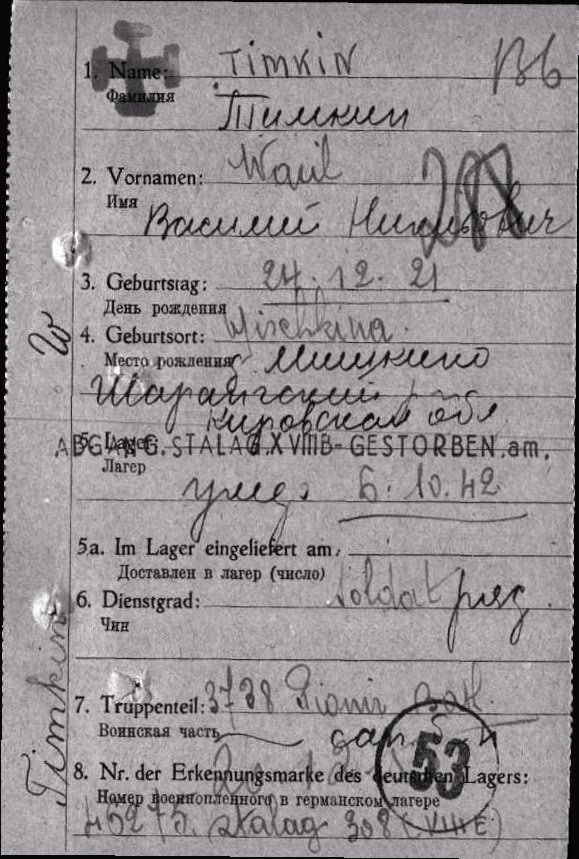 1. Name: TIMKIN
Фамилия
Тимкин
2. Vornamen: Wasil
Имя
Василий
3. Geburtstag: 24.12.21
День рождения
4. Geburtsort: Mischkina
Место рождения Мишкино
Шарангский
Кировская обл
5. Lager:
ABGANG. STALAG. XVIIIB- GESTORBEN. am.
Лагер
6.10.42
5a. Im Lager eingeliefert am:
Доставлен в лагер (число)
6. Dienstgrad: Soldat ряд.
Чин
7. Truppenteil: 3738 Pionir Batl.
Воинская часть сап. б-н
53
8. Nr. der Erkennungsmarke des deutschen Lagers:
Номер военнопленного в германском лагере
Stalag 308 (VIII E)
Timkin